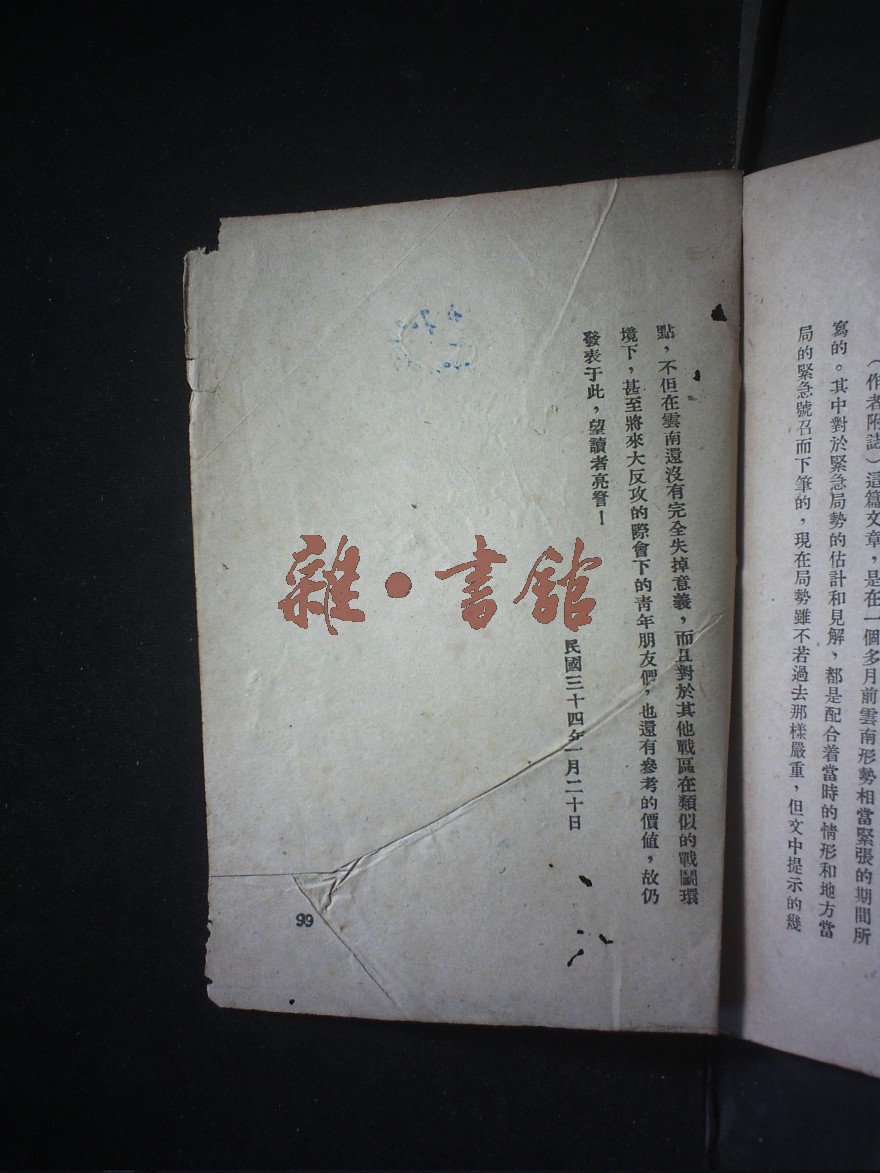 （作者附誌）這篇文章，是在一個多月前雲南形勢相當緊張的期間所
寫的。其中對於緊急局勢的估計和見解，都是配合着當時的情形和地方當
局的緊急號召而下筆的，現在局勢雖不若過去那樣嚴重，但文中提示的幾
點，不但在雲南還沒有完全失掉意義，而且對於其他戰區在類似的戰鬭環
境下，甚至將來大反攻的際會下的青年朋友們，也還有參考的價値，故仍
發表于此，望讀者亮詧！
民國三十四年一月二十日
99
雜·書館